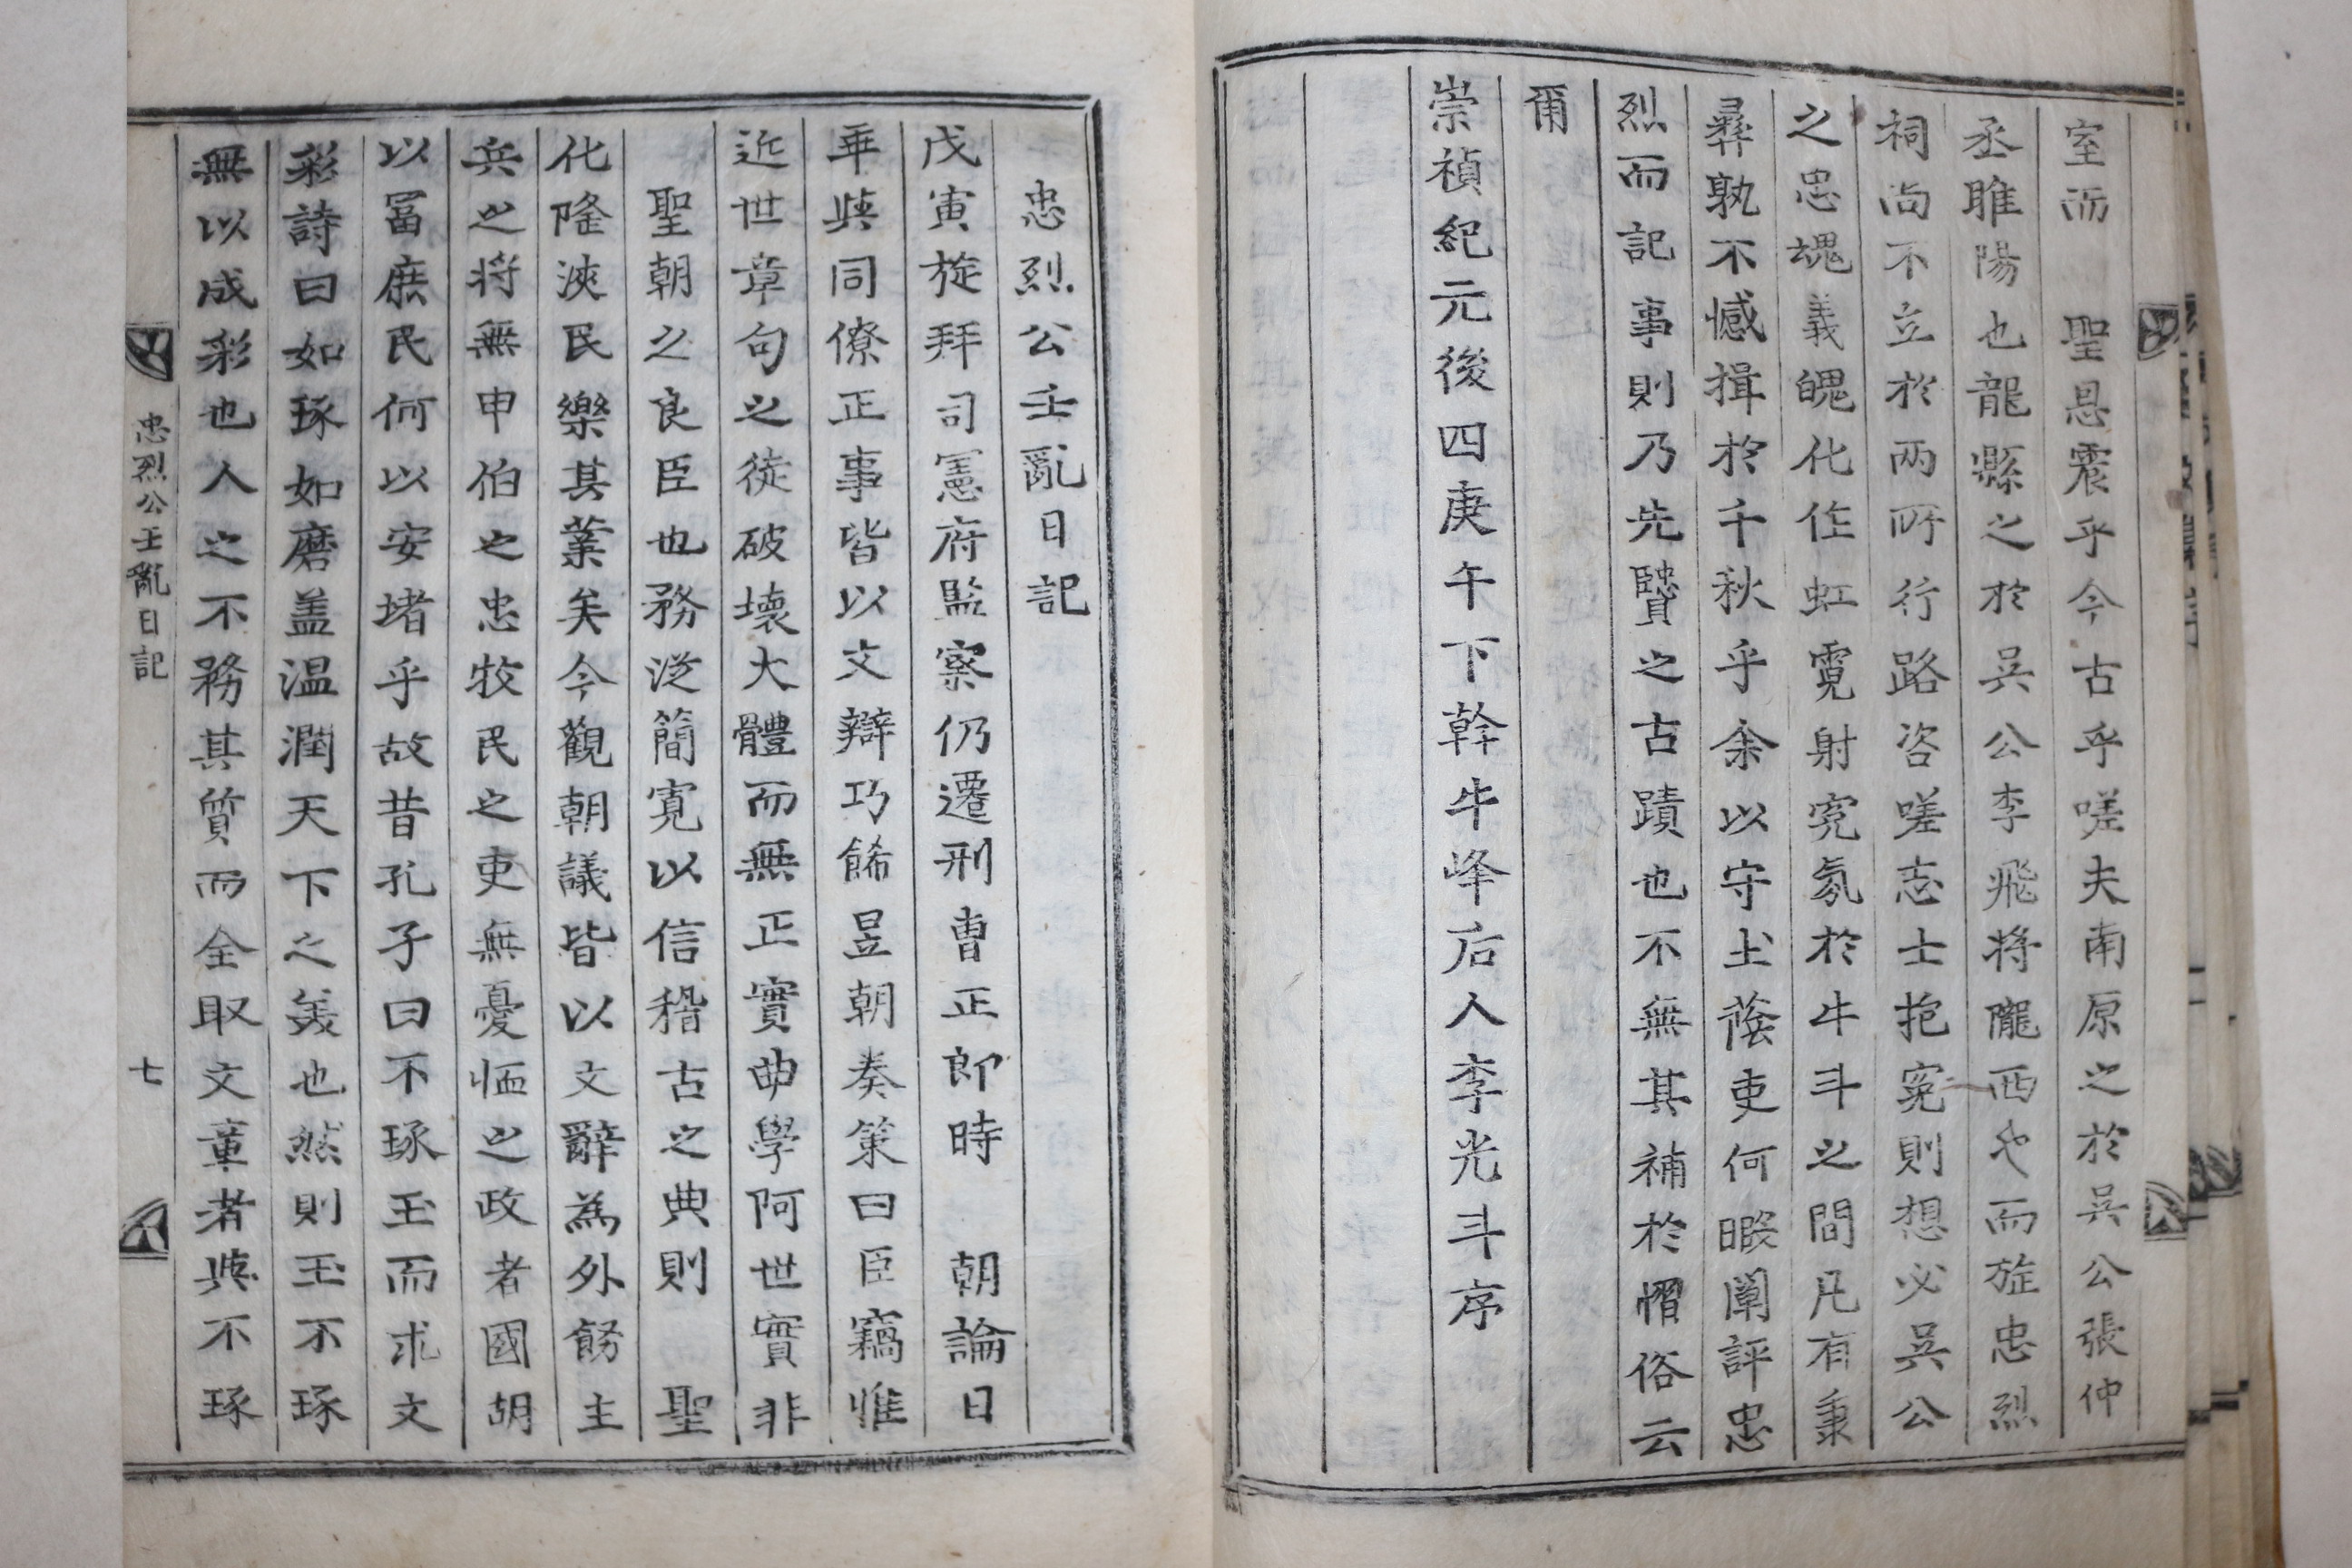 室而　聖恩震乎今古乎嗟夫南原之於吳公張仲
丞雎陽也龍縣之於吳公李飛将隴西也而旋忠烈
祠尙不立於兩所行路咨嗟志士抱寃則想必吳公
之忠魂義魄化作虹霓射寃氛於牛斗之間凡有秉
彛孰不憾揖於千秋乎余以守土蔭吏何暇闡評忠
烈而記事則乃先賢之古蹟也不無其補於懦俗云
爾
崇禎紀元後四庚午下幹牛峰后人李光斗序
忠烈公壬亂日記
戊寅旋拜司憲府監察仍遷刑曺正郎時　朝論日
乖與同僚正事皆以文辯巧餙昱朝奏策曰臣竊惟
近世章句之徒破壞大體而無正實曲學阿世實非
聖朝之良臣也務從簡寛以信稽古之典則　聖
化隆浹民樂其業矣今觀朝議皆以文辭為外餝主
兵之将無申伯之忠牧民之吏無憂恤之政者國胡
以冨庶民何以安堵乎故昔孔子曰不琢玉而求文
彩詩曰如琢如磨盖温潤天下之美也然則玉不琢
無以成彩也人之不務其質而全取文章者與不琢
忠烈公壬亂日記
七